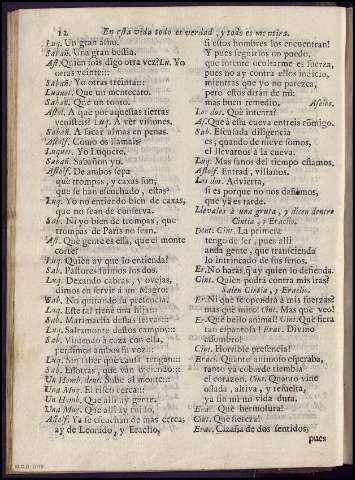 12. En esta vida todo es verdad, y todo es mentira.
Luq. Un gran asno.
Sabañ. Una gran bestia.
Ast. Quien sois digo otra vez? Lu. Yo
otras veinte:::
Sabañ. Yo otras treinta:::
Luquet. Que un mentecato.
Sabañ. Que un tonto.
Ast. A què por aquestas tierras
venisteis? Luq. A vèr visiones.
Sabañ. A sacar almas en penas.
Astolf. Como os llamais?
Luquet. Yo Luquete.
Sabañ. Sabañon yo.
Astolf. De ambos sepa
què trompas, y caxas son,
que se han escuchado, estas?
Luq. Yo no entiendo bien de caxas,
que no sean de conserva.
Sab. Ni yo bien de trompas, que
trompas de Paris no sean.
Ast. Què gente es ella, que el monte
corre?
Luq. Quien ay que lo entienda?
Sab. Pastores somos los dos.
Luq. Dexando cabras, y ovejas,
dimos en servir à un Magro:
Sab. No quitando su presencia.
Luq. Este tal tiene una hija:::
Sab. Marimacha destas selvas:::
Luq. Saltamonte destos campos:::
Sab. Viniendo à caza con ella,
perdimos ambos su voz:::
Luq. Sin saber què caxas tengan:::
Sab. Estotras, que vàn diciendo:::
Un Homb. dent. Subè al monte:::
Una Mug. El risco cerca:::
Un Homb. Que allí ay gente.
Una Mug. Que allí ay ruido.
Astolf. Ya se escuchan de mas cerca;
ay de Leonido, y Eraclio,
si estos hombres los encuentran!
Y pues seguirlos no puedo,
que intente ocultarme es fuerza,
pues no ay contra ellos indicio,
mientras que yo no parezca,
pero estos diràn de mi:
mas buen remedio. Aselos.
Los dos. Què intenta?
Ast. Que à esta cueva entreis comigo.
Sab. Escusada diligencia
es, quando de nieve somos,
el llevarnos à la cueva.
Luq. Mas sanos del tiempo estamos.
Astolf. Entrad, villanos.
Los dos. Advierta,
si es porque no nos dañemos,
que yà es tarde.
Llevalos à una gruta, y dicen dentro
Cintia, y Eraclio.
Dent. Cint. La primera
tengo de ser, pues alli
anda gente, que transcienda
lo intricado de sus senos.
Er. No haràs, q ay quien lo defienda.
Cint. Quien podrà contra mis iras?
Salen Cintia, y Eraclio.
Er. Ni què se opondrà à mis fuerzas?
mas què miro! Cint. Mas què veo!
Er. Què bello animal! Cint. Què fiera
tan espantosa! Erac. Divino
assombro!
Cint. Horrible presencia!
Eracl. Quanto animoso esperaba,
tanto yà cobarde tiembla
el corazon. Cint. Quanto vine
osada, altiva, y resuelta,
yà sin mi no vida dura.
Erac. Què hermosura!
Cint. Què fiereza!
Erac. Cizaña de dos sentidos,
pues